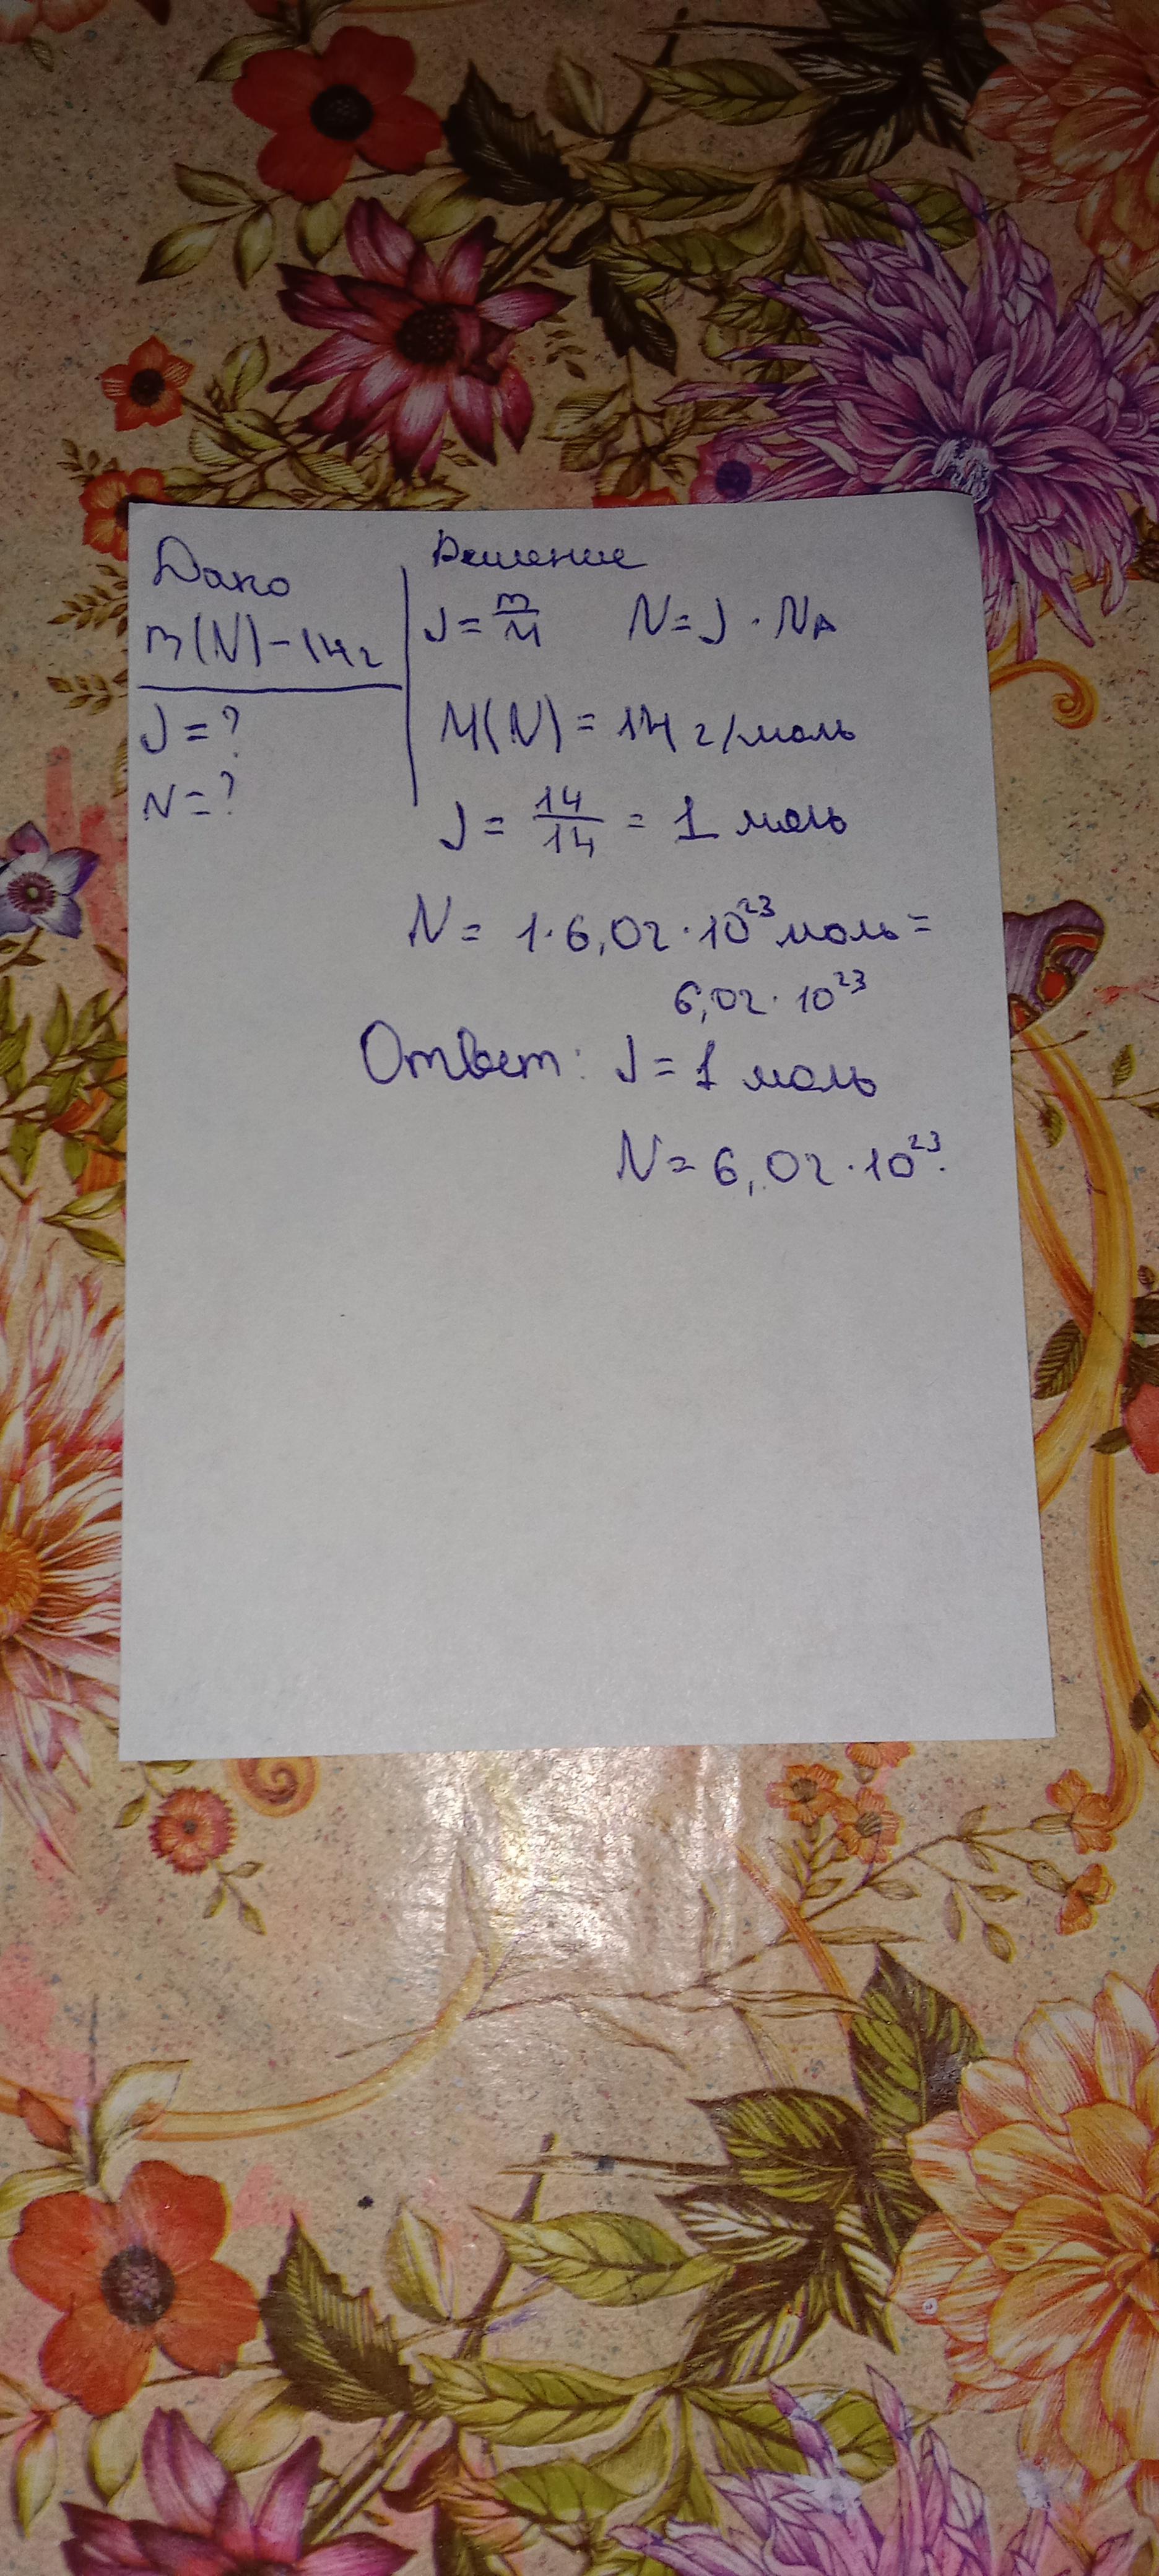 Дано
m(N) - 14 г
J = ?
N = ?
Решение
J = m/M   N = J · NA
M(N) = 14 г/моль
J = 14/14 = 1 моль
N = 1 · 6,02 · 10²³ моль =
6,02 · 10²³
Ответ: J = 1 моль
N = 6,02 · 10²³.